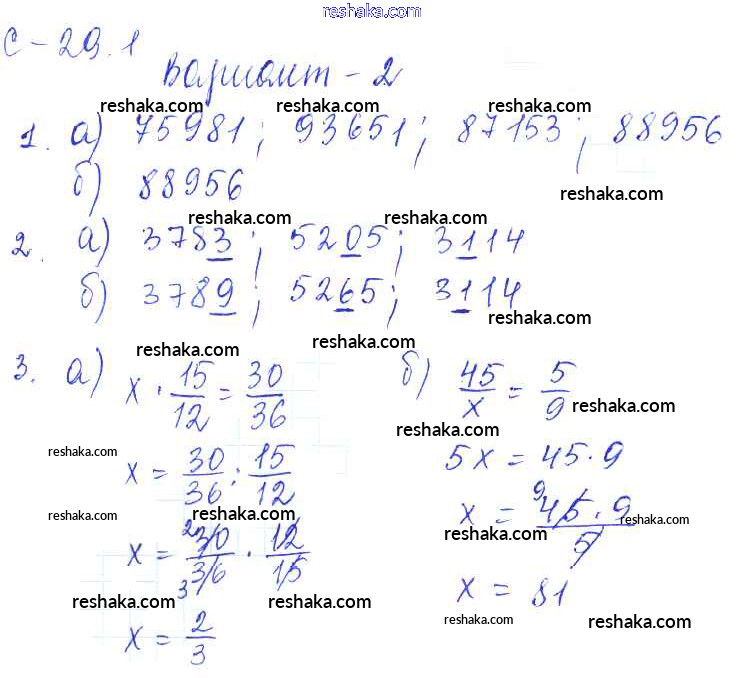 reshaka.com
С-29.1
Вариант-2
reshaka.com reshaka.com reshaka.com reshaka.com
1. а) 75981; 93651; 87153; 88956
б) 88956
reshaka.com
reshaka.com reshaka.com
2. а) 3783; 5205; 3114
б) 3789; 5265; 3114
reshaka.com
reshaka.com
reshaka.com
3. а) x · 15/12 = 30/36
б) 45/x = 5/9
reshaka.com
reshaka.com
x = 30/36 : 15/12
5x = 45·9
reshaka.com
reshaka.com
reshaka.com
x = 2 30/36 3 · 12/15
x = 9 45·9/5
reshaka.com
reshaka.com
x = 81
reshaka.com reshaka.com
reshaka.com reshaka.com
x = 2/3
reshaka.com